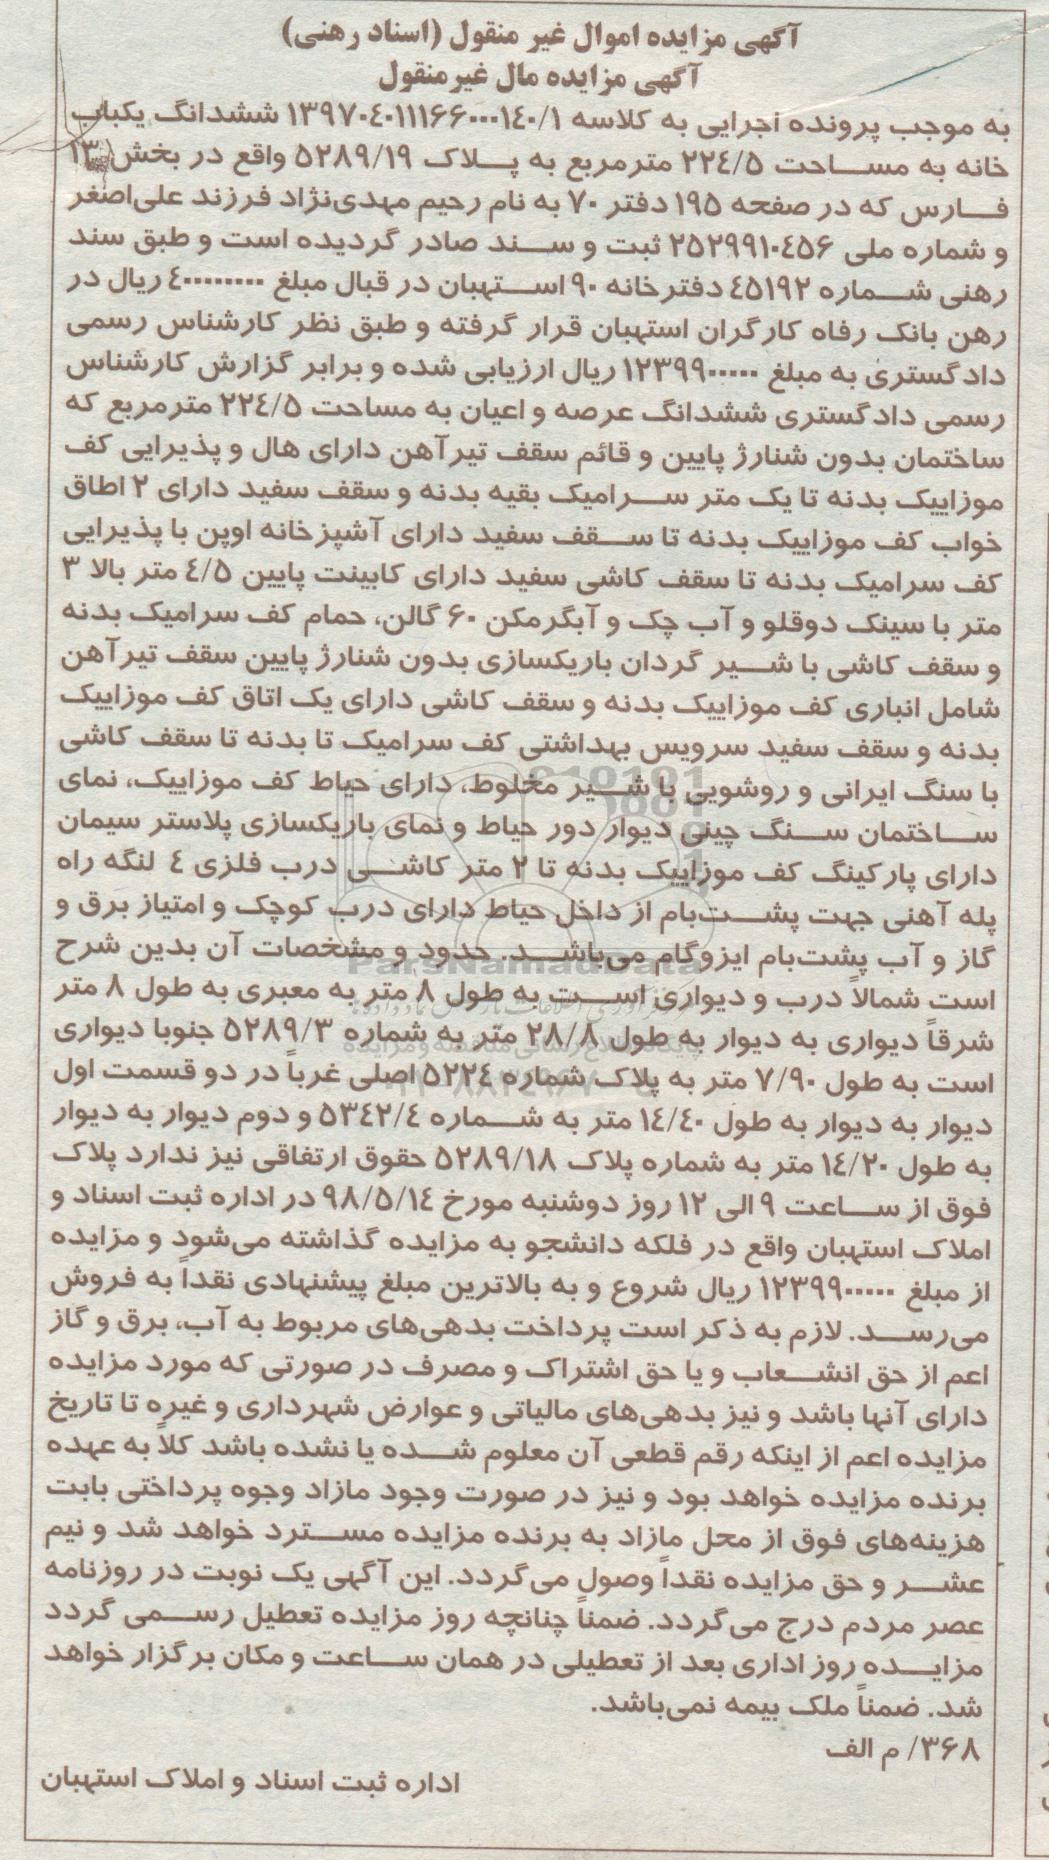 آگهی مزایده اموال غیر منقول (اسناد رهنی)
آگهی مزایده مال غیرمنقول
به موجب پرونده اجرایی به کلاسه ۱۳۹۷۰۴۰۱۱۱۶۶۰۰۰۱۴۰/۱ ششدانگ یکباب
خانه به مساحت ۲۲۴/۵ مترمربع به پلاک ۵۲۸۹/۱۹ واقع در بخش ۱۳
فارس که در صفحه ۱۹۵ دفتر ۷۰ به نام رحیم مهدی‌نژاد فرزند علی‌اصغر
و شماره ملی ۲۵۲۹۹۱۰۴۵۶ ثبت و سند صادر گردیده است و طبق سند
رهنی شماره ۴۵۱۹۲ دفترخانه ۹۰ استهبان در قبال مبلغ ۴۰۰۰۰۰۰۰۰ ریال در
رهن بانک رفاه کارگران استهبان قرار گرفته و طبق نظر کارشناس رسمی
دادگستری به مبلغ ۱۲۳۹۹۰۰۰۰۰ ریال ارزیابی شده و برابر گزارش کارشناس
رسمی دادگستری ششدانگ عرصه و اعیان به مساحت ۲۲۴/۵ مترمربع که
ساختمان بدون شنارژ پایین و قائم سقف تیرآهن دارای هال و پذیرایی کف
موزاییک بدنه تا یک متر سرامیک بقیه بدنه و سقف سفید دارای ۲ اطاق
خواب کف موزاییک بدنه تا سقف سفید دارای آشپزخانه اوپن با پذیرایی
کف سرامیک بدنه تا سقف کاشی سفید دارای کابینت پایین ۴/۵ متر بالا ۳
متر با سینک دوقلو و آب چک و آبگرمکن ۶۰ گالن، حمام کف سرامیک بدنه
و سقف کاشی با شیر گردان باریکسازی بدون شنارژ پایین سقف تیرآهن
شامل انباری کف موزاییک بدنه و سقف کاشی دارای یک اتاق کف موزاییک
بدنه و سقف سفید سرویس بهداشتی کف سرامیک تا بدنه تا سقف کاشی
با سنگ ایرانی و روشویی با شیر مخلوط، دارای حیاط کف موزاییک، نمای
ساختمان سنگ چینی دیوار دور حیاط و نمای باریکسازی پلاستر سیمان
دارای پارکینگ کف موزاییک بدنه تا ۲ متر کاشی درب فلزی ۴ لنگه راه
پله آهنی جهت پشت‌بام از داخل حیاط دارای درب کوچک و امتیاز برق و
گاز و آب پشت‌بام ایزوگام می‌باشد. حدود و مشخصات آن بدین شرح
است شمالاً درب و دیواری است به طول ۸ متر به معبری به طول ۸ متر
شرقاً دیواری به دیوار به طول ۲۸/۸ متر به شماره ۵۲۸۹/۳ جنوبا دیواری
است به طول ۷/۹۰ متر به پلاک شماره ۵۲۲۴ اصلی غرباً در دو قسمت اول
دیوار به دیوار به طول ۱۴/۴۰ متر به شماره ۵۳۴۲/۴ و دوم دیوار به دیوار
به طول ۱۴/۲۰ متر به شماره پلاک ۵۲۸۹/۱۸ حقوق ارتفاقی نیز ندارد پلاک
فوق از ساعت ۹ الی ۱۲ روز دوشنبه مورخ ۹۸/۵/۱۴ در اداره ثبت اسناد و
املاک استهبان واقع در فلکه دانشجو به مزایده گذاشته می‌شود و مزایده
از مبلغ ۱۲۳۹۹۰۰۰۰۰ ریال شروع و به بالاترین مبلغ پیشنهادی نقداً به فروش
می‌رسد. لازم به ذکر است پرداخت بدهی‌های مربوط به آب، برق و گاز
اعم از حق انشعاب و یا حق اشتراک و مصرف در صورتی که مورد مزایده
دارای آنها باشد و نیز بدهی‌های مالیاتی و عوارض شهرداری و غیره تا تاریخ
مزایده اعم از اینکه رقم قطعی آن معلوم شده یا نشده باشد کلاً به عهده
برنده مزایده خواهد بود و نیز در صورت وجود مازاد وجوه پرداختی بابت
هزینه‌های فوق از محل مازاد به برنده مزایده مسترد خواهد شد و نیم
عشر و حق مزایده نقداً وصول می‌گردد. این آگهی یک نوبت در روزنامه
عصر مردم درج می‌گردد. ضمناً چنانچه روز مزایده تعطیل رسمی گردد
مزایده روز اداری بعد از تعطیلی در همان ساعت و مکان برگزار خواهد
شد. ضمناً ملک بیمه نمی‌باشد.
۳۶۸/ م الف
اداره ثبت اسناد و املاک استهبان
ParsNamadData